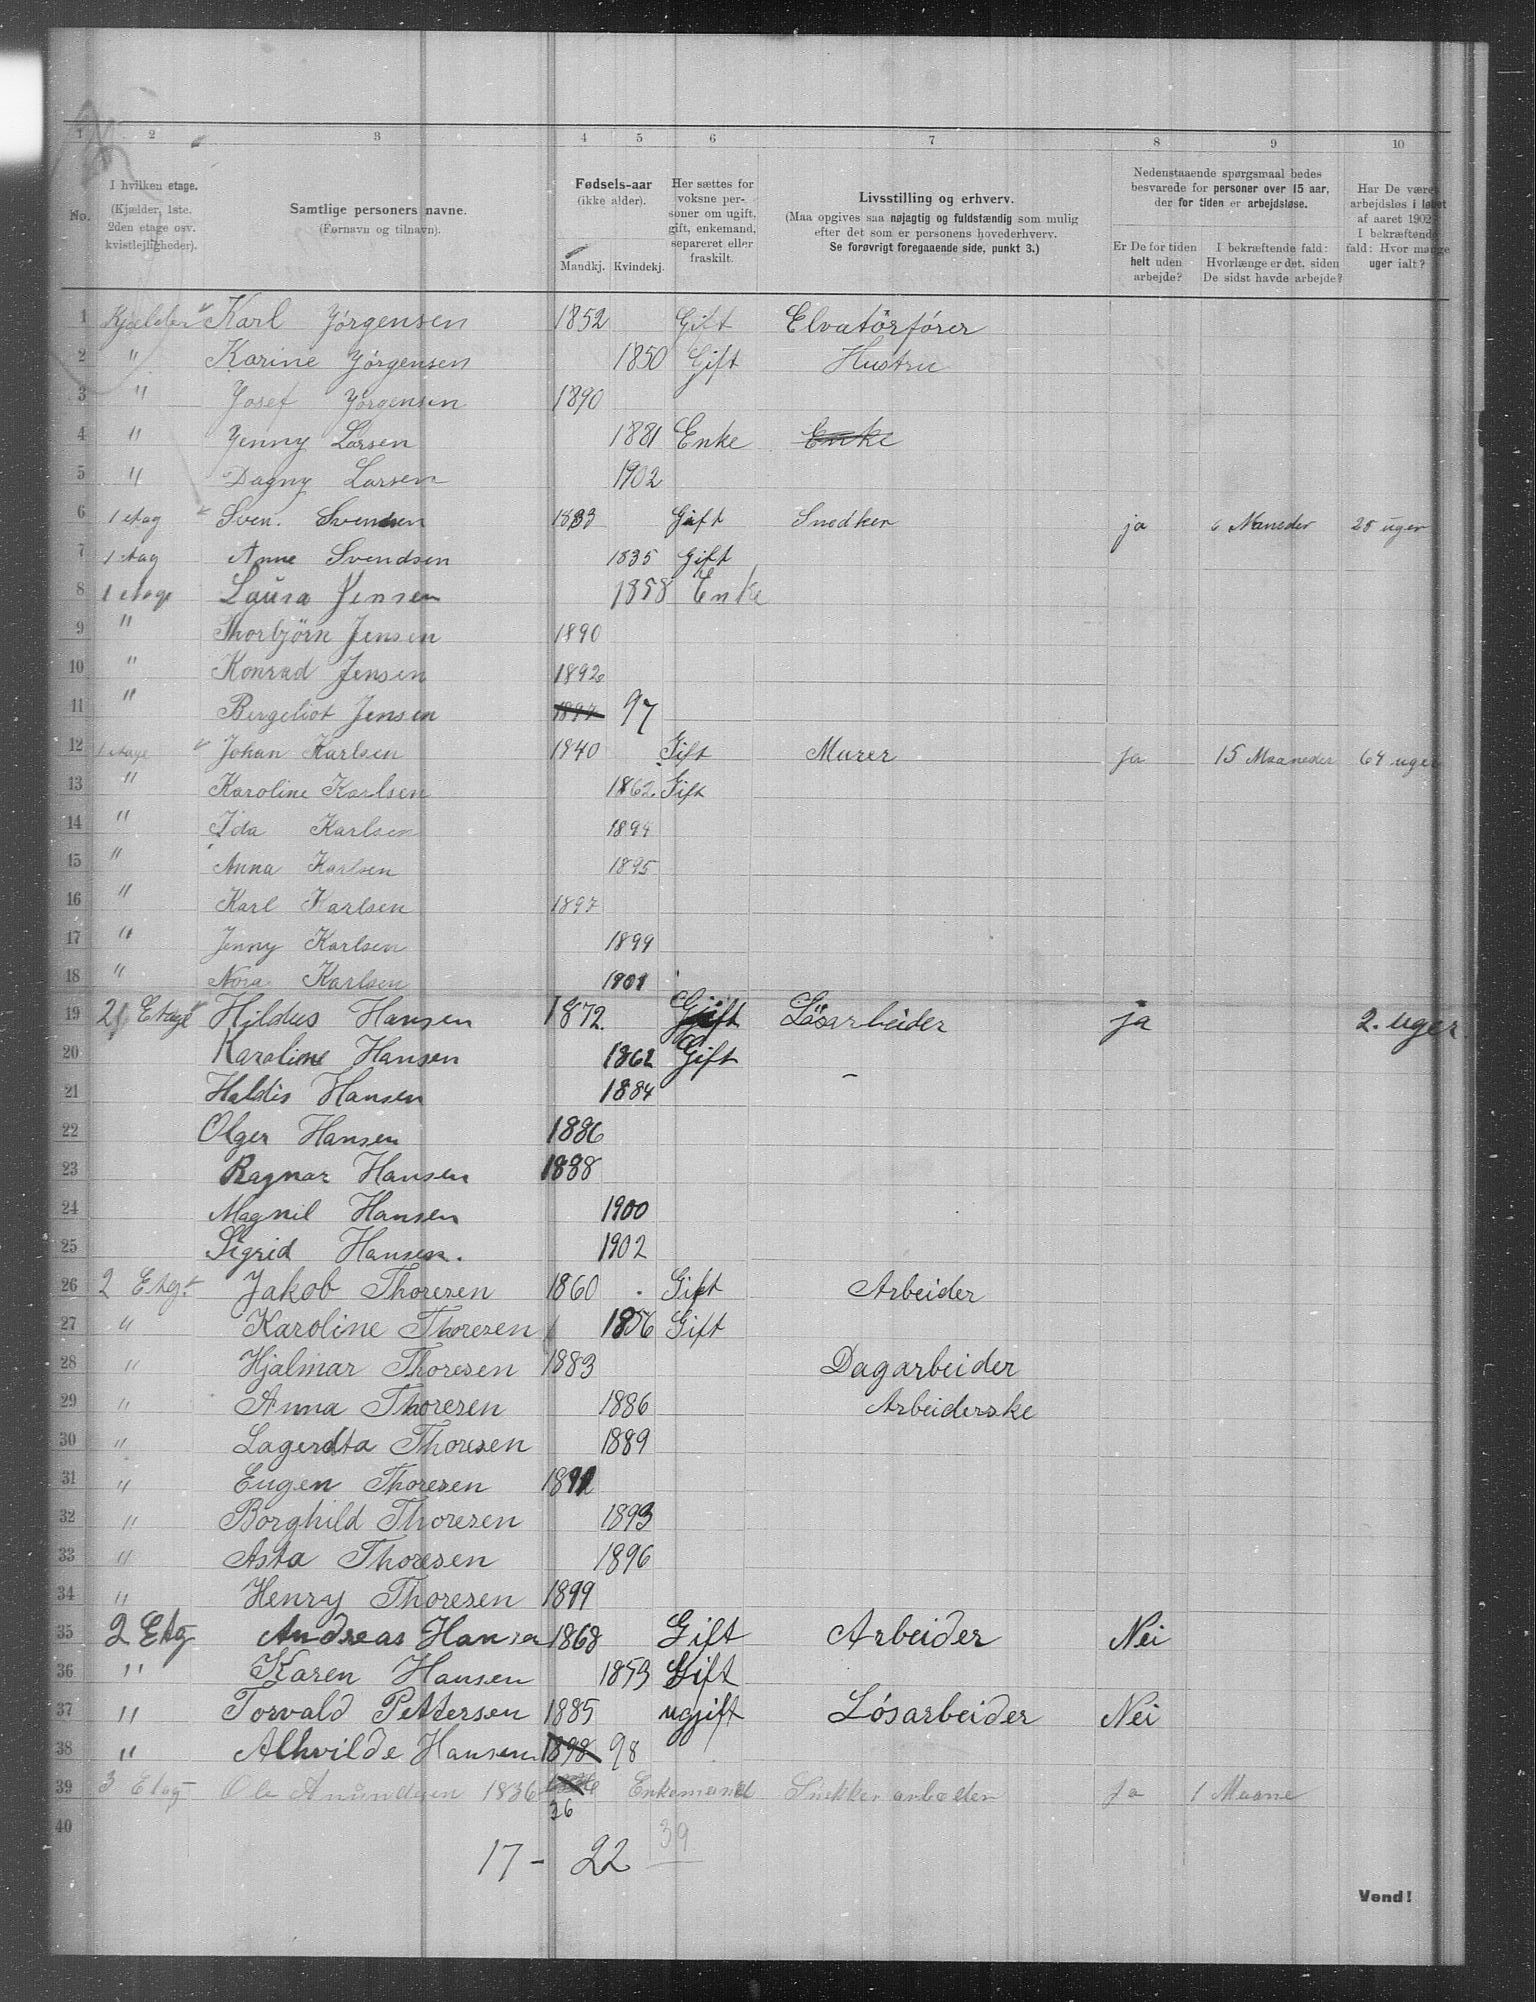 1 2 3 4 5 6 7 8 9 10
No.
I hvilken etage.
(Kjælder, 1ste. 2den etage osv. kvistlejligheder).
Samtlige personers navne.
(Fornavn og tilnavn).
Fødsels-aar
(ikke alder).
Mandkj. Kvindekj.
Her sættes for voksne personer om ugift, gift, enkemand, separeret eller fraskilt.
Livsstilling og erhverv.
(Maa opgives saa nøjagtig og fuldstændig som mulig efter det som er personens hovederhverv.
Se forøvrigt foregaaende side, punkt 3.)
Nedenstaaende spørgsmaal bedes besvarede for personer over 15 aar, der for tiden er arbejdsløse.
Er De for tiden helt uden arbejde?
I bekræftende fald: Hvorlænge er det, siden De sidst havde arbejde?
Har De været arbejdsløs i løbet af aaret 1902? I bekræftende fald: Hvor mange uger ialt?
1 Kjælder Karl Jörgensen 1852 Gift Elvatörförer
2 " Karine Jörgensen 1850 Gift Hustru
3 " Josef Jörgensen 1890
4 " Jenny Larsen 1881 Enke Enke
5 " Dagny Larsen 1902
6 1 etag Sven. Svendsen 1833 Gift Snedker ja 6 Maneder 25 uger
7 1 etag Anne Svendsen 1835 Gift
8 1 etage Laura Jensen 1858 Enke
9 " Thorbjörn Jensen 1890
10 " Konrad Jensen 1892
11 " Bergeliot Jensen 1897 97
12 1 etage Johan Karlsen 1840 Gift Murer Ja 15 Maaneder 64 uger
13 " Karoline Karlsen 1862 Gift
14 " Ida Karlsen 1894
15 " Anna Karlsen 1895
16 " Karl Karlsen 1897
17 " Jenny Karlsen 1899
18 " Nora Karlsen 1901
19 2 Etage Hildus Hansen 1872. Gift Lösarbeider ja 2. uger
20 Karoline Hansen 1862 Gift
21 Haldis Hansen 1884 –
22 Olger Hansen 1886
23 Ragnar Hansen 1888
24 Magnil Hansen 1900
25 Sigrid Hansen. 1902
26 2 Etg. Jakob Thoresen 1860 Gift Arbeider
27 " Karoline Thoresen 1856 Gift
28 " Hjalmar Thoresen 1883 Dagarbeider
29 " Anna Thoresen 1886 Arbeiderske
30 " Lagerdta Thoresen 1889
31 " Eugen Thoresen 1891
32 " Borghild Thoresen 1893
33 " Asta Thoresen 1896
34 " Henry Thoresen 1899
35 2 Etg Andreas Hansen 1868 Gift Arbeider Nei
36 " Karen Hansen 1853 Gift
37 " Torvald Pettersen 1885 ugift Lösarbeider Nei
38 " Alhvilde Hansen 1898 98
39 3 Etag Ole Amundsen 1836 36 Enkemand Snekker arbeder Ja 1 Maane
40
17 - 22 39
Vend!